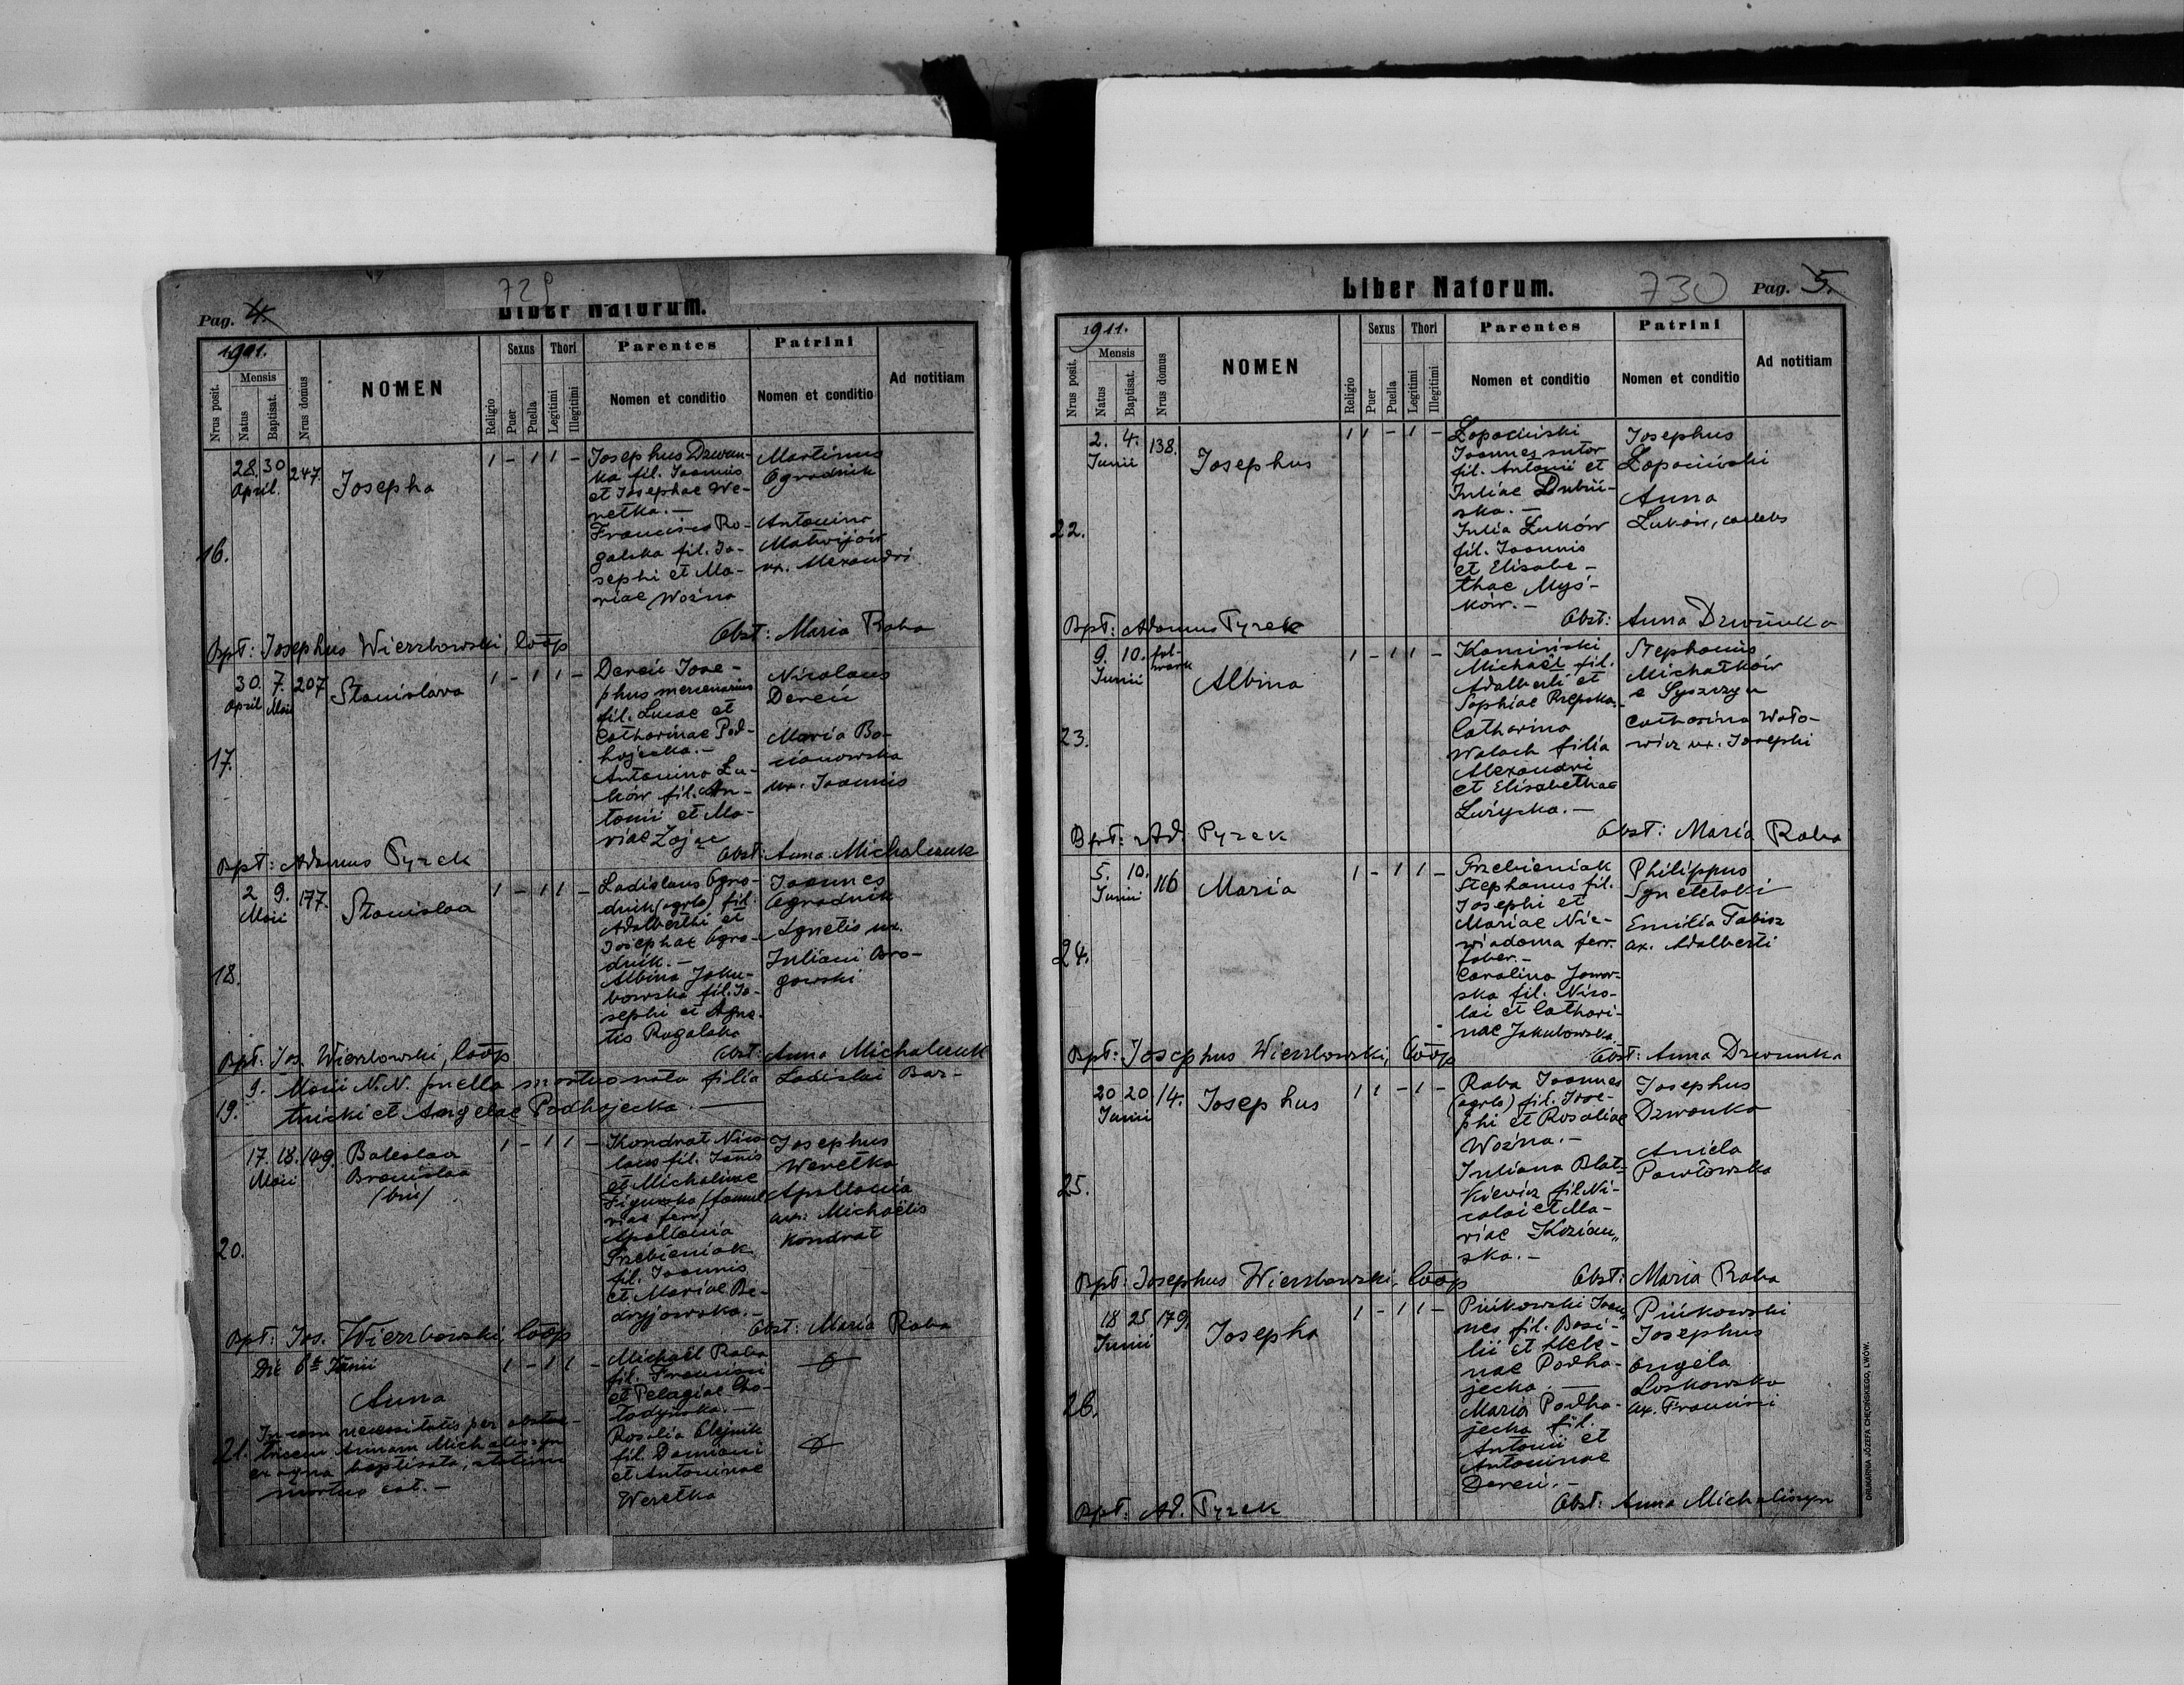 729
Liber Natorum.
Pag. 4.
1911.
Nrus posit.
Mensis
Natus
Baptisat.
Nrus domus
NOMEN
Religio
Sexus
Puer
Puella
Thori
Legitimi
Illegitimi
Parentes
Nomen et conditio
Patrini
Nomen et conditio
Ad notitiam
16.
28. 30
April.
247.
Josepha
1 - 1 1 -
Josephus Dzwon-
ka fil. Joannis
et Josephae We-
retka. -
Francisca Ro-
galska fil. Jo-
sephi et Ma-
riae Woźna
Martinus
Ogrodnik
Antonina
Matwijów
ux. Alexandri
Obst: Maria Raba
Bpt: Josephus Wierzbowski, Coop
17.
30. 7.
April Maii
207
Stanislava
1 - 1 1 -
Dereń Jose-
phus mercenarius
fil. Lucae et
Catharinae Pod-
hajecka. -
Antonina Łu-
ków fil. An-
tonii et Ma-
riae Zając
Nicolaus
Dereń
Maria Bo-
cianowska
ux. Joannis
Obst: Anna Michalczuk
Bpt: Adamus Pyrek
18.
2 9.
Maii
177.
Stanislaa
1 - 1 1 -
Ladislaus Ogro-
dnik (agrla) fil.
Adalberthi et
Josephae Ogro-
dnik. -
Albina Jaku-
bowska fil. Jo-
sephi et Agne-
tis Rogalska
Joannes
Ogrodnik
Agnetis ux.
Juliani Bro-
gowski
Obst: Anna Michalczuk
Bpt: Jos. Wierzbowski, Coop
19.
9. Maii N.N. puella mortuo nata filia Ladislai Bar-
tnicki et Angelae Podhajecka. -
20.
17. 18.
Maii
149.
Boleslaa
Bronislaa
(bin)
1 - 1 1 -
Kondrat Nico-
laus fil. Joannis
et Michalinae
Figurska (famul
viae ferr)
Apollonia
Trzebieniak
fil. Joannis
et Mariae Be-
dryjowska. -
Josephus
Weretka
Apollonia
ux: Michaelis
Kondrat
Obst: Maria Raba
Bpt: Jos. Wierzbowski, Coop
21.
Die 6ta Junii
1 - 1 1 -
Anna
In casu necessitatis per obste-
tricem Annam Michaliszyn
ex aqua baptisata, statim
mortua est. -
Michaël Raba
fil. Francisci
et Pelagiae Cho-
łodyńska. -
Rosalia Olejnik
fil. Damiani
et Antoninae
Weretka
730
Liber Natorum.
Pag. 5.
1911.
Nrus posit.
Mensis
Natus
Baptisat.
Nrus domus
NOMEN
Religio
Sexus
Puer
Puella
Thori
Legitimi
Illegitimi
Parentes
Nomen et conditio
Patrini
Nomen et conditio
Ad notitiam
22.
2. 4.
Junii
138.
Josephus
1 1 - 1 -
Łopaciński
Joannes sutor
fil. Antonii et
Juliae Dubiń-
ska. -
Julia Łuków
fil. Joannis
et Elisabe-
thae Myś-
ków. -
Josephus
Łopaciński
Anna
Łuków, caelebs
Obst: Anna Dzwonka
Bpt: Adamus Pyrek
23.
9. 10.
Junii
fol-
wark
Albina
1 - 1 1 -
Kamiński
Michaël fil.
Adalberti et
Sophiae Rzepska. -
Catharina
Wołoch filia
Alexandri
et Elisabethae
Łużycka. -
Stephanus
Michałków
e Łyszczyn
Catharina Woło-
wicz ux. Josephi
Obst: Maria Raba
Bpt: Ad. Pyrek
24.
5. 10.
Junii
116
Maria
1 - 1 1 -
Trzebieniak
Stephanus fil.
Josephi et
Mariae Nie-
wiadoma ferr.
faber. -
Carolina Jawor-
ska fil. Nico-
lai et Cathari-
nae Jakubowska.
Philippus
Sgnetelski
Emilia Tabisz
ux. Adalberti
Obst: Anna Dzwonka
Bpt: Josephus Wierzbowski, Coop
25.
20 20
Junii
14.
Josephus
1 1 - 1 -
Raba Joannes
(agrla) fil. Jose-
phi et Rosaliae
Woźna. -
Juliana Blat-
kiewicz fil. Ni-
colai et Ma-
riae Kozian-
ska. -
Josephus
Dzwonka
Aniela
Pawłowska
Obst: Maria Raba
Bpt: Josephus Wierzbowski, Coop
26.
18 25
Junii
179.
Josepha
1 - 1 1 -
Pińkowski Joan-
nes fil. Basi-
lii et Hele-
nae Podha-
jecka. -
Maria Podha-
jecka fil.
Antonii et
Antoninae
Dereń. -
Pińkowski
Josephus
Angela
Loskowska
ux. Francisci
Obst: Anna Michaliszyn
Bpt: Ad. Pyrek
DRUKARNIA JÓZEFA CHĘCIŃSKIEGO, LWÓW.